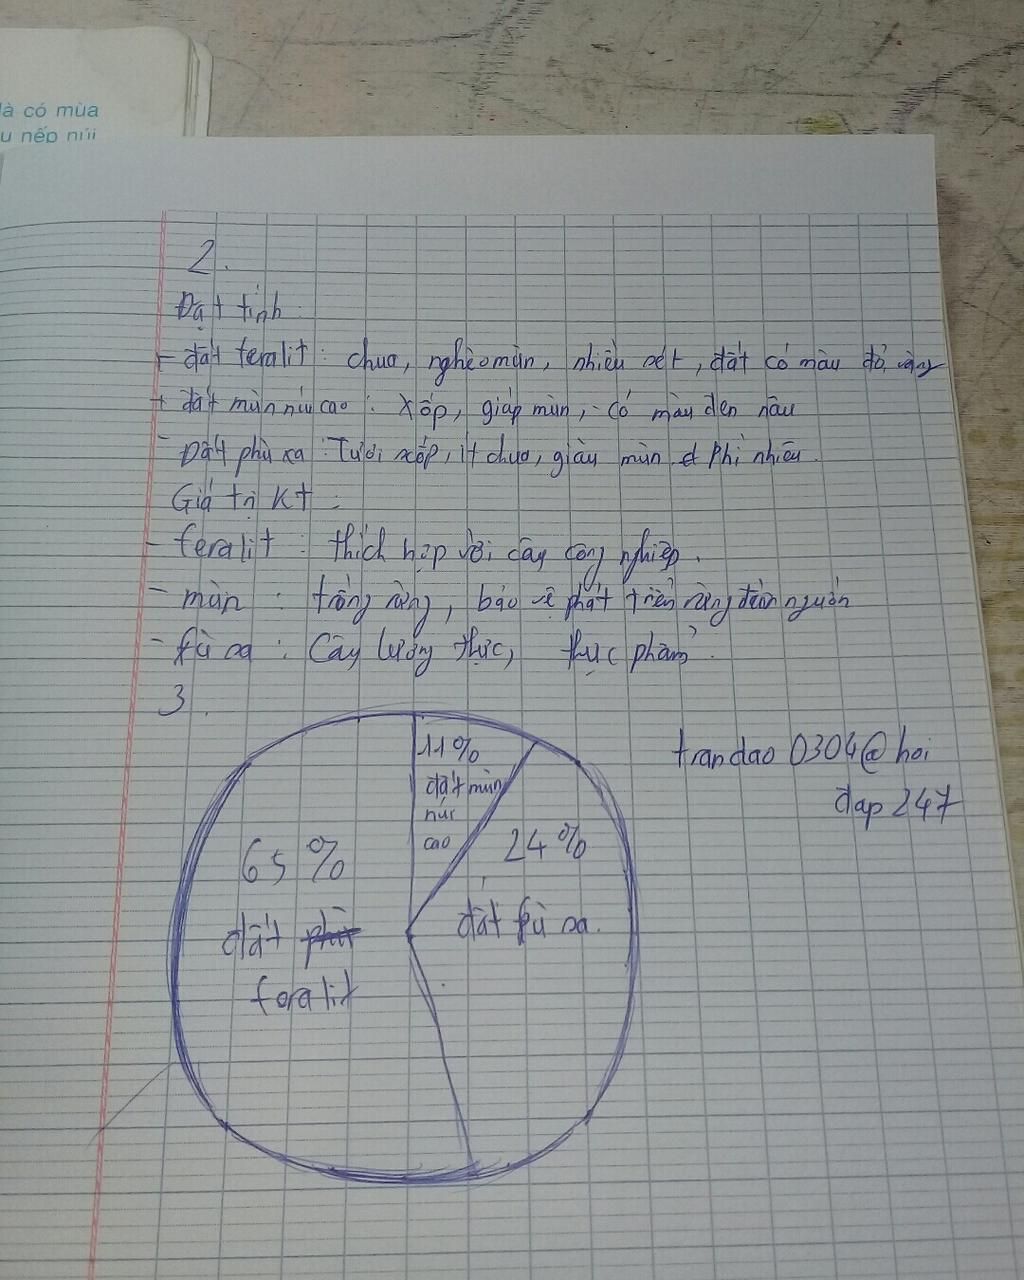 là có mùa
u nếp núi
2.
Đặt tính
- đất feralit : chua, nghèo mùn, nhiều sét, đất có màu đỏ, vàng
+ đất mùn núi cao : Xốp, giáp mùn, - có màu đen nâu
- Đất phù xa : Tươi xốp, ít chua, giàu mùn Phì nhiêu.
Giá trị KT :
- feralit : thích hợp với cây công nghiệp.
- mùn : trồng rừng, bảo vệ phát triển rừng đầu nguồn
- fù xa : Cây lương thực, thực phẩm.
3.
11%
đất mùn
núi
cao
65 %
24 %
đất phù
feralit
đất fù xa.
trandao 0304@hoi
dap 247